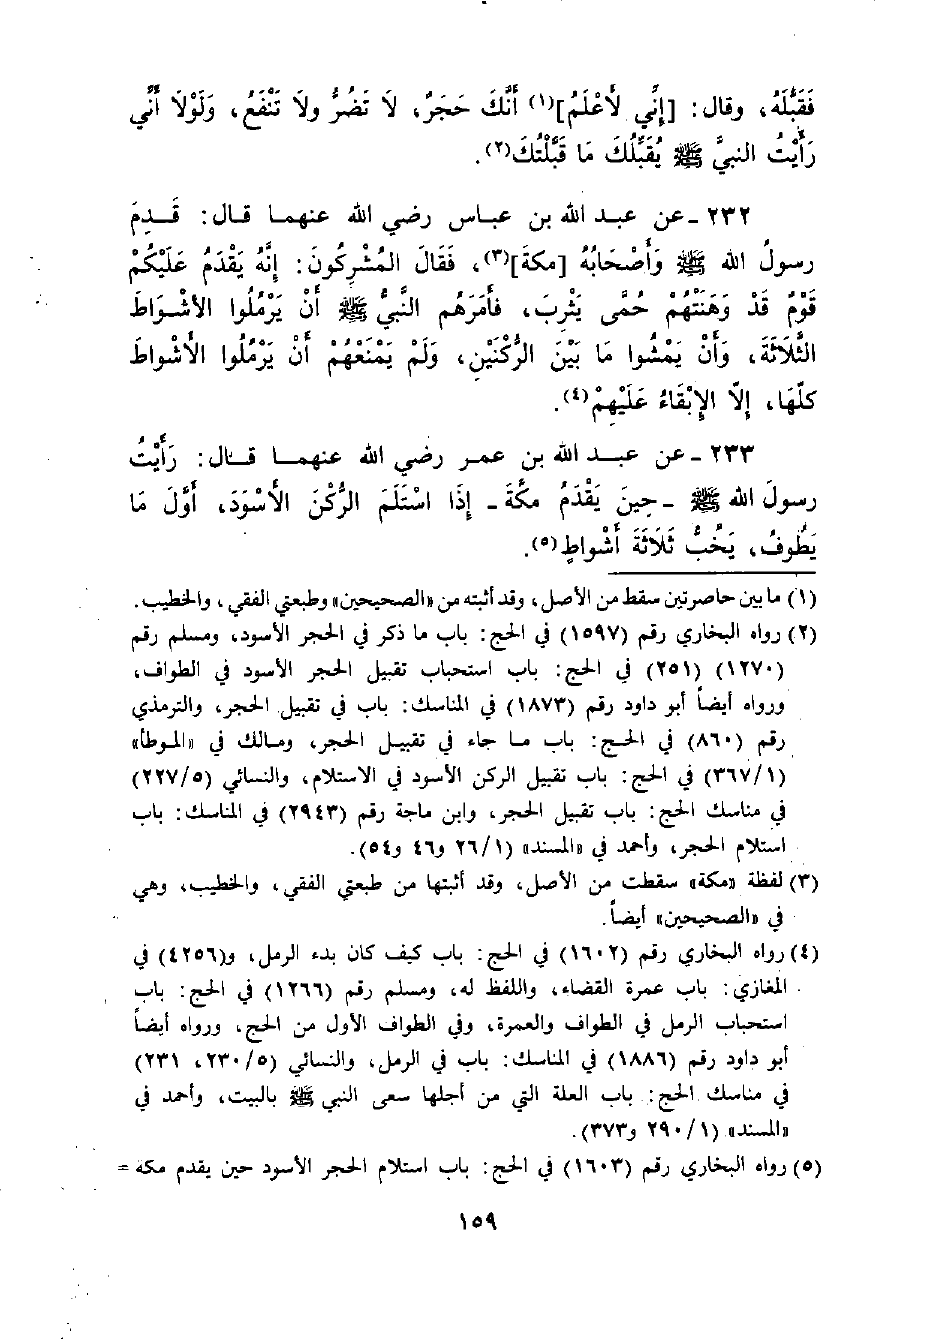 فَقَبَّلَهُ، وقال: [إِنِّي لأَعْلَمُ](١) أَنَّكَ حَجَرٌ، لاَ تَضُرُّ ولاَ تَنْفَعُ، وَلَوْلاَ أَنِّي
رَأَيْتُ النبيَّ ﷺ يُقَبِّلُكَ مَا قَبَّلْتُكَ(٢).
٢٣٢ ـ عن عبد الله بن عباس رضي الله عنهما قال: قَدِمَ
رسولُ الله ﷺ وَأَصْحَابُهُ [مكةَ](٣)، فَقَالَ المُشْرِكُونَ: إِنَّهُ يَقْدَمُ عَلَيْكُمْ
قَوْمٌ قَدْ وَهَنَتْهُمْ حُمَّى يَثْرِبَ، فَأَمَرَهُم النَّبيُّ ﷺ أَنْ يَرْمُلُوا الأَشْوَاطَ
الثَّلاَثَةَ، وَأَنْ يَمْشُوا مَا بَيْنَ الرُّكْنَيْنِ، وَلَمْ يَمْنَعْهُمْ أَنْ يَرْمُلُوا الأَشْواطَ
كلَّهَا، إِلاَّ الإِبْقَاءُ عَلَيْهِمْ(٤).
٢٣٣ ـ عن عبد الله بن عمر رضي الله عنهما قال: رَأَيْتُ
رسولَ الله ﷺ ـ حِينَ يَقْدَمُ مكَّةَ ـ إِذَا اسْتَلَمَ الرُّكْنَ الأَسْوَدَ، أَوَّلَ مَا
يَطُوفُ، يَخُبُّ ثَلاَثَةَ أَشْواطٍ(٥).
(١) ما بين حاصرتين سقط من الأصل، وقد أثبته من «الصحيحين» وطبعتي الفقي، والخطيب.
(٢) رواه البخاري رقم (١٥٩٧) في الحج: باب ما ذكر في الحجر الأسود، ومسلم رقم
(١٢٧٠) (٢٥١) في الحج: باب استحباب تقبيل الحجر الأسود في الطواف،
ورواه أيضاً أبو داود رقم (١٨٧٣) في المناسك: باب في تقبيل الحجر، والترمذي
رقم (٨٦٠) في الحج: باب ما جاء في تقبيل الحجر، ومالك في «الموطأ»
(٣٦٧/١) في الحج: باب تقبيل الركن الأسود في الاستلام، والنسائي (٢٢٧/٥)
في مناسك الحج: باب تقبيل الحجر، وابن ماجة رقم (٢٩٤٣) في المناسك: باب
استلام الحجر، وأحمد في «المسند» (٢٦/١ و٤٦ و٥٤).
(٣) لفظة «مكة» سقطت من الأصل، وقد أثبتها من طبعتي الفقي، والخطيب، وهي
في «الصحيحين» أيضاً.
(٤) رواه البخاري رقم (١٦٠٢) في الحج: باب كيف كان بدء الرمل، و(٤٢٥٦) في
المغازي: باب عمرة القضاء، واللفظ له، ومسلم رقم (١٢٦٦) في الحج: باب
استحباب الرمل في الطواف والعمرة، وفي الطواف الأول من الحج، ورواه أيضاً
أبو داود رقم (١٨٨٦) في المناسك: باب في الرمل، والنسائي (٢٣٠/٥، ٢٣١)
في مناسك الحج: باب العلة التي من أجلها سعى النبي ﷺ بالبيت، وأحمد في
«المسند» (٢٩٠/١ و٣٧٣).
(٥) رواه البخاري رقم (١٦٠٣) في الحج: باب استلام الحجر الأسود حين يقدم مكة =
١٥٩